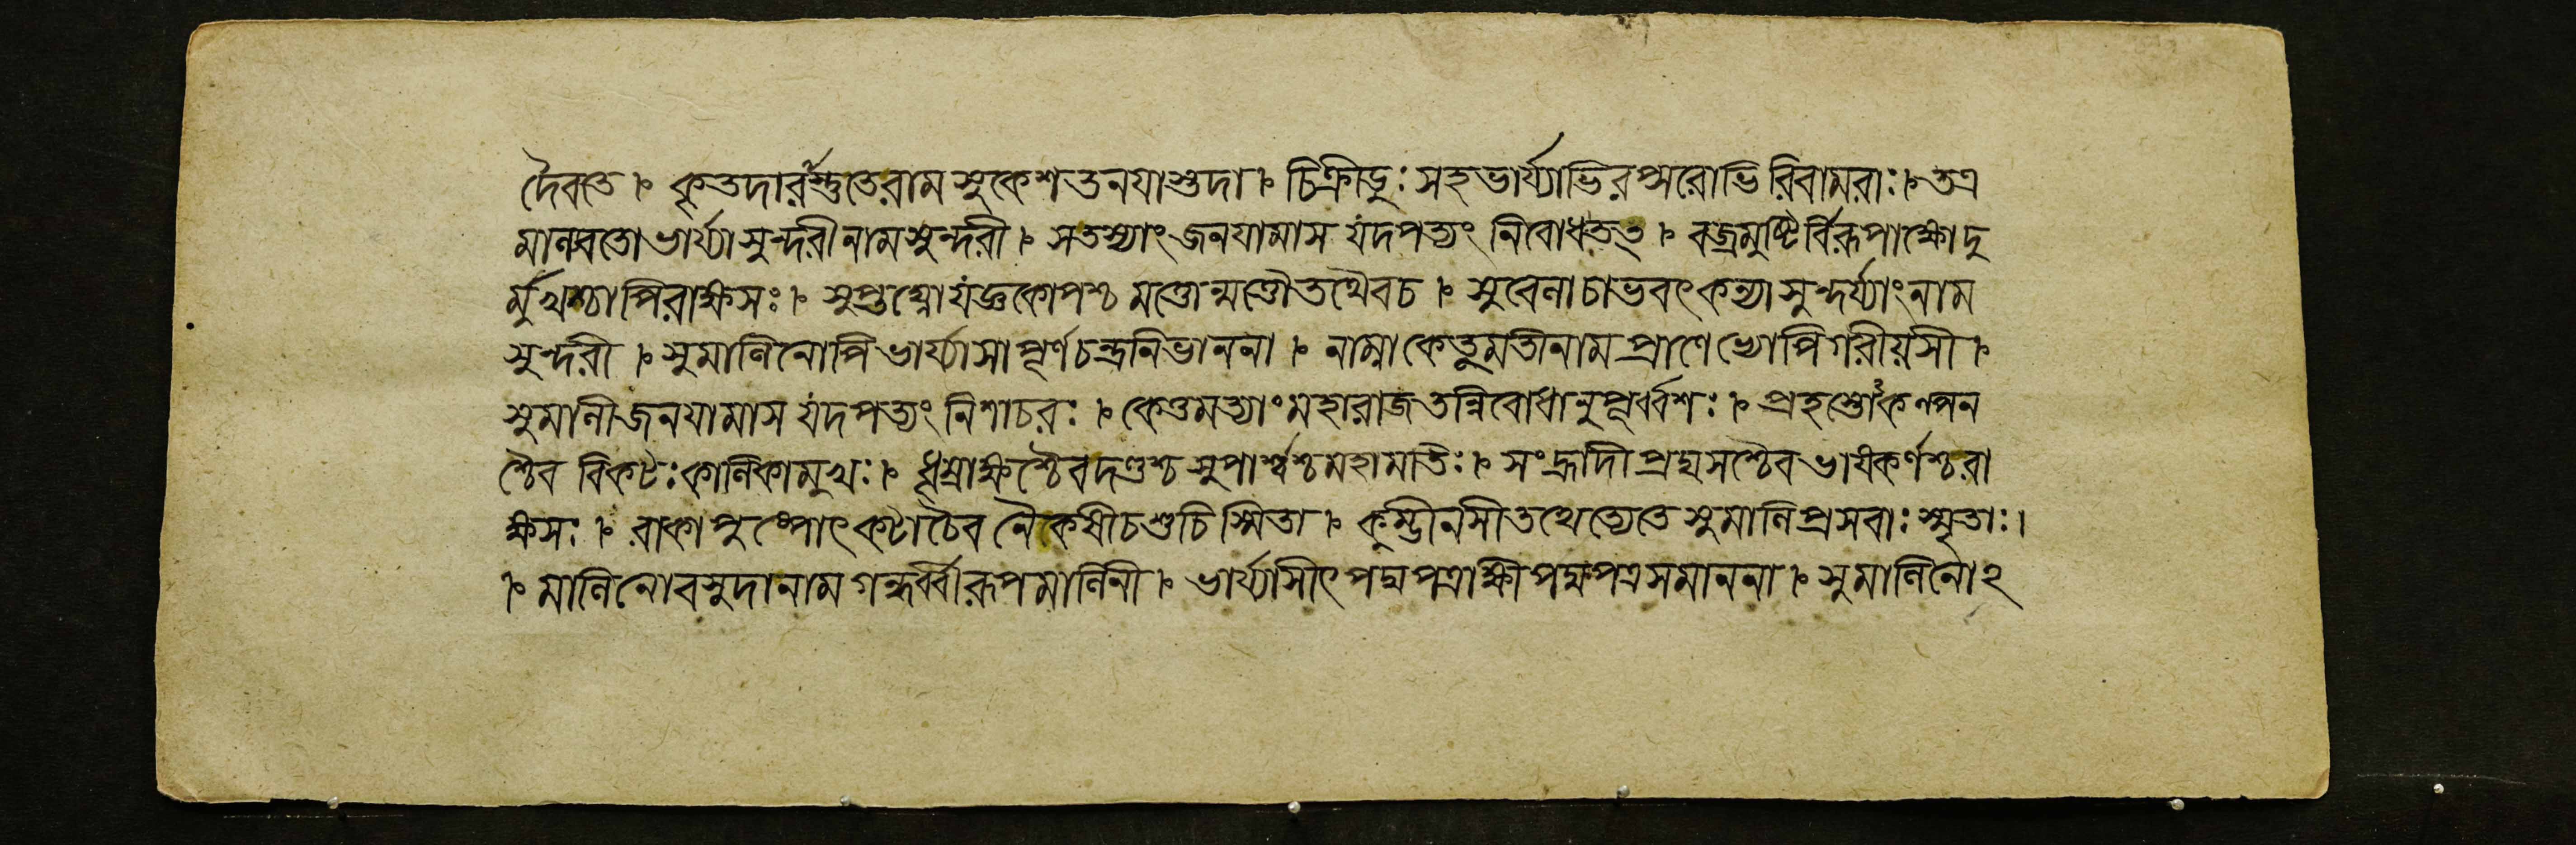 দৈবতে ৷ কৃতদারাস্তুতেরাম সুকেশতনযাস্তদা ৷ চিক্রীডুঃ সহভার্য্যাভিরপ্সরোভিরিবামরাঃ ৷ তত্র
মানবতো ভার্য্যাসুন্দরীনামসুন্দরী ৷ সতস্যাংজনযামাস যদপত্যং নিবোধতত্ ৷ বজ্রমুষ্টির্বিরূপাক্ষোদু
র্মুখশ্চাপিরাক্ষসঃ ৷ সুপ্তঘ্নোযজ্ঞকোপশ্চ মত্তোন্মত্তৌতথৈবচ ৷ সুবেনাচাভবৎকন্যাসুন্দর্য্যাংনাম
সুন্দরী ৷ সুমালিনোপিভার্য্যাসাপূর্ণচন্দ্রনিভাননা ৷ নাম্নাকেতুমতীনামপ্রাণেভ্যোপিগরীয়সী ৷
সুমালীজনযামাস যদপত্যং নিশাচরঃ ৷ কেতুমত্যাংমহারাজতন্নিবোধানুপূর্ব্বশঃ ৷ প্রহস্তোঁকম্পন
শ্চৈব বিকটঃকালিকামুখঃ ৷ ধূম্রাক্ষশ্চৈবদণ্ডশ্চ সুপার্শ্বশ্চমহামতিঃ ৷ সংহ্রাদীপ্রঘসশ্চৈবভাসকর্ণশ্চরা
ক্ষসঃ ৷ রাকাপুষ্পোৎকটাচৈব নৈকষীচশুচিস্মিতা ৷ কুম্ভীনসীতথেত্যেতে সুমালিপ্রসবাঃ স্মৃতাঃ ৷
৷ মালিনোবসুদানামগন্ধর্ব্বীরূপমালিনী ৷ ভার্য্যাসীৎপদ্মপত্রাক্ষীপদ্মপত্রসমাননা ৷ সুমালিনোঽ